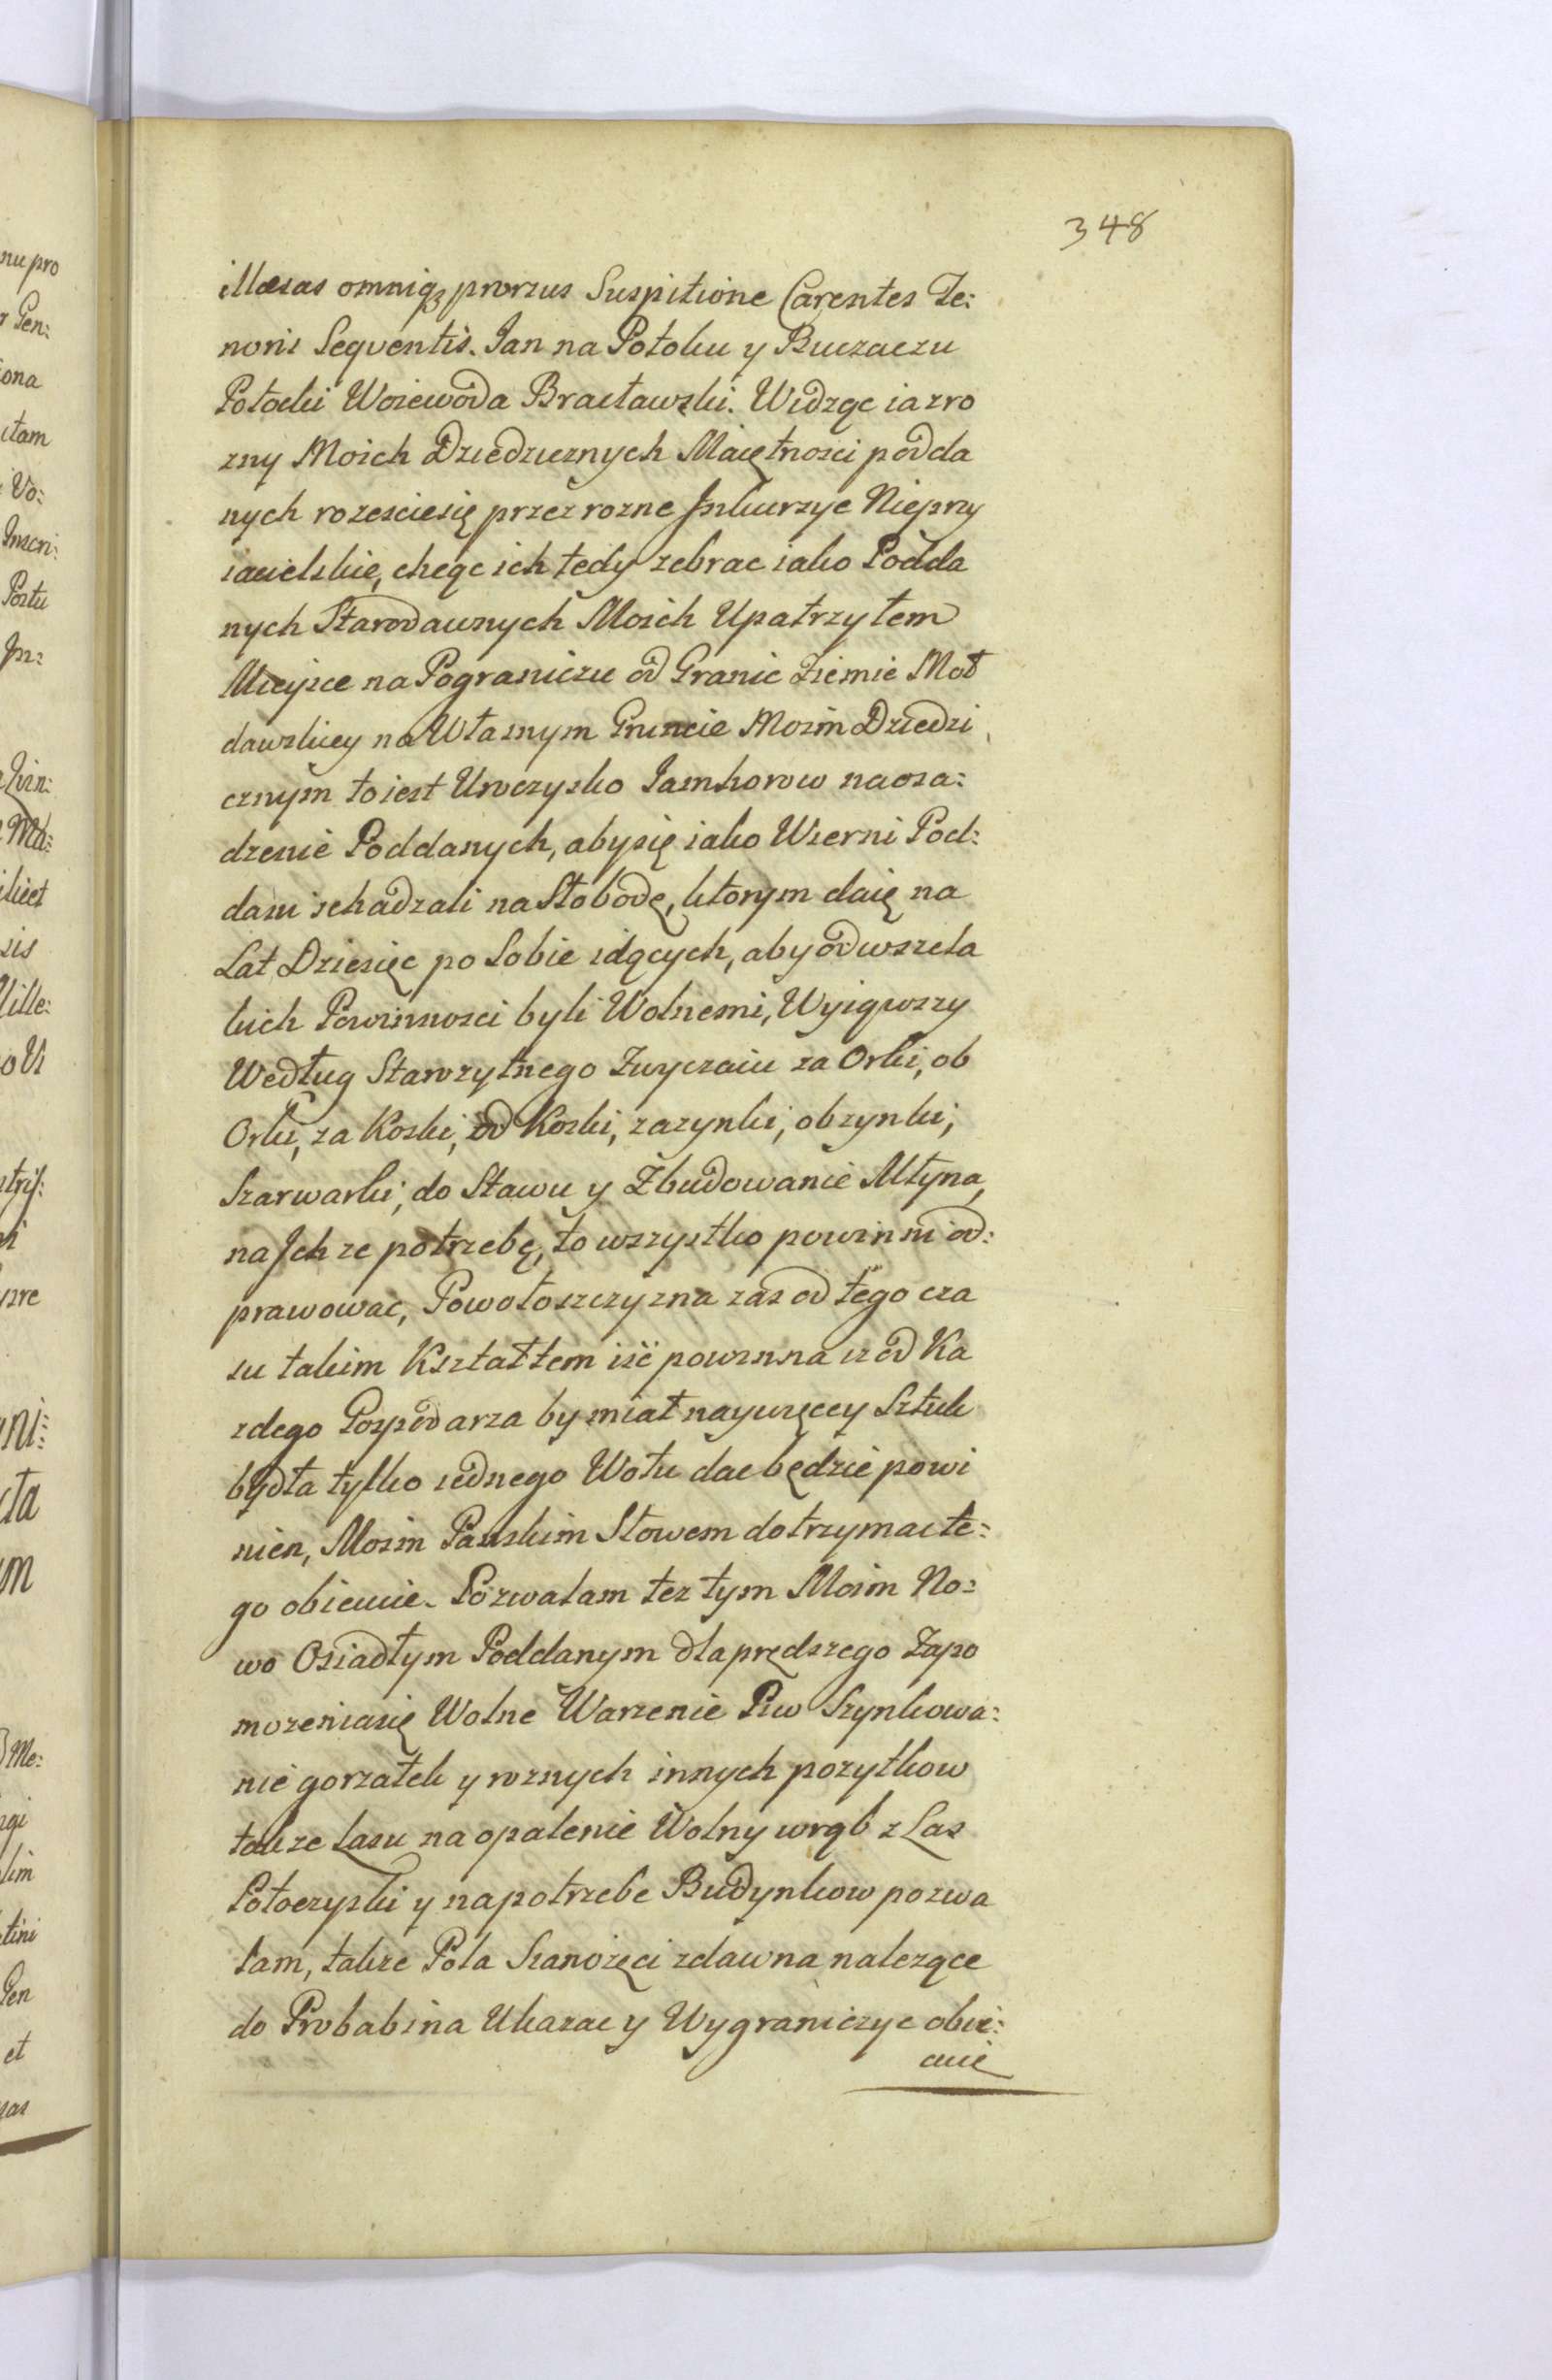 348
illæsas omniqȝ prorsus Suspitione Carentes Te:
noris Seqventis. Jan na Potoku y Buczaczu
Potocki Woiewoda Bracławski. Widząc ia zro
zny Moich Dziedzicznych Maiętnosci podda
nych rozescie się przez rozne Inkursye Nieprzy
iacielskie, chcąc ich tedy zebrac iako Podda
nych Starodawnych Moich Upatrzyłem
Mieysce na Pograniczu od Granic Ziemie Moł
dawskiey na Własnym Gruncie Moim Dziedzi
cznym to iest Uroczysko Jamhorow na osa:
dzenie Poddanych, aby się iako Wierni Pod:
dani schadzali na Słobodę, ktorym daię na
Lat Dziesięc po Sobie idących, aby od wszela
kich Powinnosci byli Wolnemi, Wyiąwszy
Według Starozytnego Zwyczaiu za Orki, ob
Orki, za Koski, od Koski, zazynki, obzynki,
Szarwarki, do Stawu y Zbudowanie Młyna,
na Ich ze potrzebę, to wszystko powinni od:
prawowac, Powołoszczyzna zas od tego cza
su takim Kształtem iść powinna iz od Ka
zdego Gospodarza by miał naywięcey Sztuk
bydła tylko iednego Wołu dac będzie powi
nien, Moim Panskim Słowem dotrzymac te:
go obiecuie. Pozwalam tez tym Moim No:
wo Osiadłym Poddanym dla prędszego Zapo
mozenia się Wolne Warzenie Piw Szynkowa:
nie gorzałek y roznych innych pozytkow
takze Lasu na opalenie Wolny wrąb z Las
Potoczyski y na potrzebe Budynkow pozwa
lam, takze Pola Szanozęci zdawna nalezące
do Probabina Ukazac y Wygraniczyc obie:
cuie
nu pro
Gen:
iona
Vo:
Inscri:
Postu
In:
Ma:
licet
sis
Me:
Gen
et